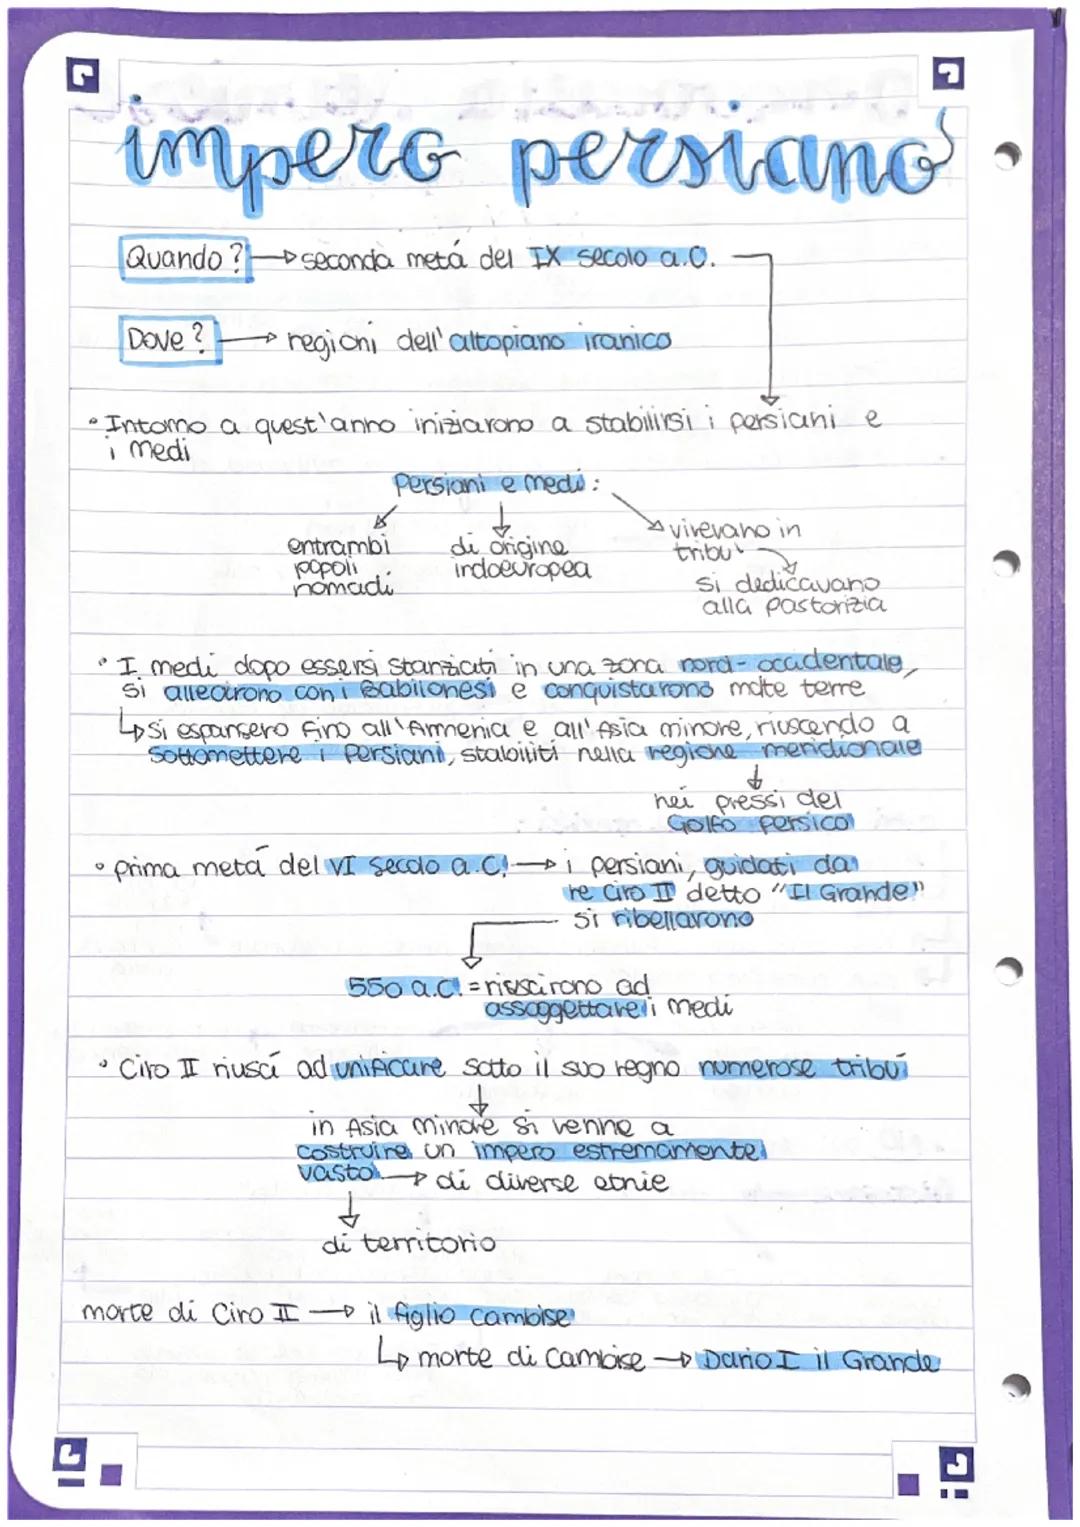 impero persiano
Quando? → seconda metá del IX secolo a.C.
Dove? → regioni dell'altopiano iranico
• Intorno a quest'anno iniziarono a stabilirsi i persiani e
i medi
Persiani e medi:
entrambi
popoli
nomadi
di origine
indoeuropea
vivevano in
tribù
si dedicavano
alla pastorizia
• I medi dopo essersi stanziati in una zona nord-occidentale,
si allearono con i Babilonesi e conquistarono molte terre
↳ Si espansero fino all'Armenia e all'Asia minore, riuscendo a
sottomettere i Persiani, stabiliti nella regione meridionale
nei pressi del
Golfo persico
• prima metá del VI secolo a.C. → i persiani, guidati da
re Ciro II detto "Il Grande"
si ribellarono
550 a.C. = riuscirono ad
assoggettare i medi
• Ciro II riuscí ad unificare sotto il suo regno numerose tribú
in Asia minore si venne a
costruire un impero estremamente
vasto → di diverse etnie
di territorio
morte di Ciro II → il figlio Cambise
↳ morte di Cambise → Dario I il Grande